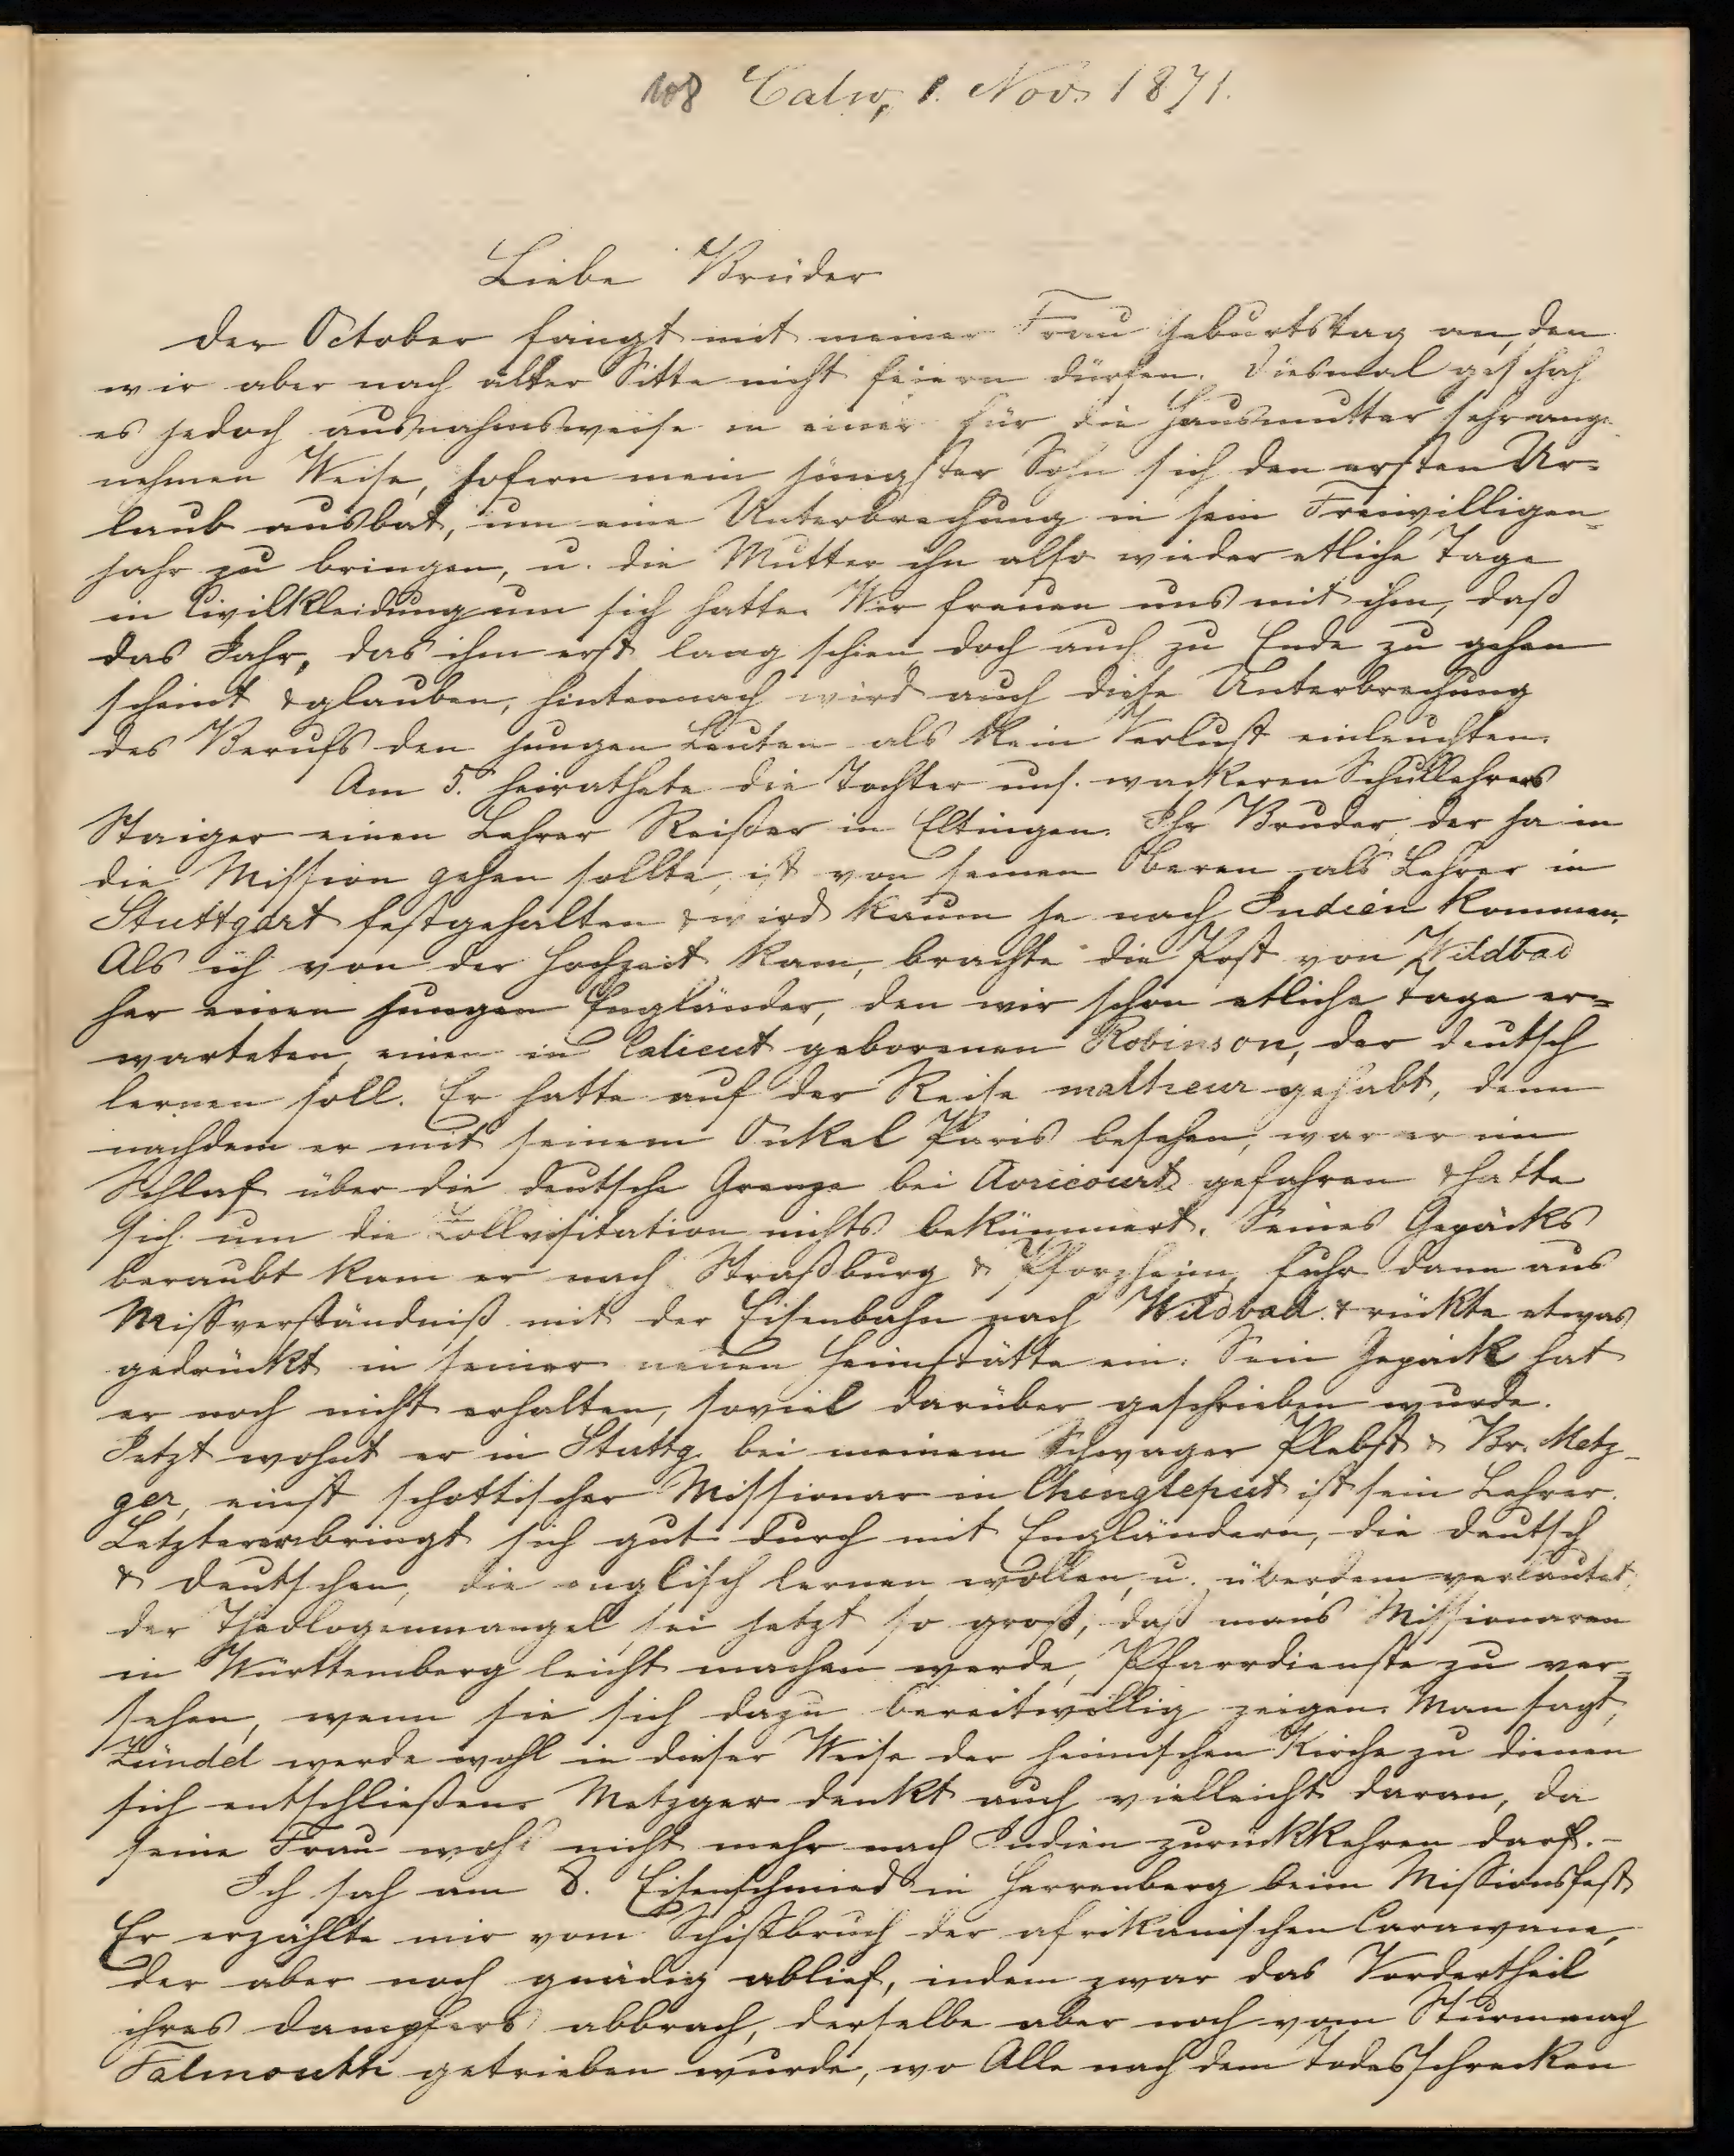 108 Calw, 1. Nov. 1871.
Liebe Brüder
der October fängt mit meiner Frau Geburtstag an, den
wir aber nach alter Sitte nicht feiern dürfen. Diesmal geschah
es jedoch ausnahmsweise in einer für die Hausmutter sehr ange-
nehmen Weise, sofern mein jüngster Sohn sich den ersten Ur-
laub ausbat, um eine Unterbrechung in sein Freiwilligen-
jahr zu bringen, u. die Mutter ihn also wieder etliche Tage
in Civilkleidung um sich hatte. Wir freuen uns mit ihm, daß
das Jahr, das ihm erst lang schien doch auch zu Ende zu gehen
scheint & glauben, hintennach wird auch diese Unterbrechung
des Berufs den jungen Leuten als kein Verlust einleuchten.
Am 5. heirathete die Tochter uns. wackeren Schullehrers
Staiger einen Lehrer Reißer in Eltingen. Ihr Bruder, der ja in
die Mission gehen sollte, ist von seinen Oberen als Lehrer in
Stuttgart festgehalten & wird kaum je nach Indien kommen.
Als ich von der Hochzeit kam, brachte die Post von Wildbad
her einen jungen Engländer, den wir schon etliche Tage er-
warteten, einen in Calicut geborenen Robinson, der deutsch
lernen soll. Er hatte auf der Reise malheur gehabt, denn
nachdem er mit seinem Onkel Paris besehen, war er im
Schlaf über die deutsche Grenze bei Avricourt gefahren & hatte
sich um die Zollvisitation nichts bekümmert. Seines Gepäcks
beraubt kam er nach Straßburg & Pforzheim, fuhr dann aus
Missverständniß mit der Eisenbahn nach Wildbad & rückte etwas
gedrückt in seiner neuen Heimstätte ein. Sein Gepäck hat
er noch nicht erhalten, soviel darüber geschrieben wurde.
Jetzt wohnt er in Stuttg. bei meinem Schwager Plebst & Br. Metz-
ger, einst schottischer Missionar in Chingleput ist sein Lehrer.
Letzterer bringt sich gut durch mit Engländern, die deutsch
& Deutschen, die englisch lernen wollen, u. überdem verlautet,
der Theologenmangel sei jetzt so groß, daß man's Missionaren
in Württemberg leicht machen werde, Pfarrdienste zu ver-
sehen, wenn sie sich dazu bereitwillig zeigen. Man sagt,
Zündel werde wohl in dieser Weise der heimischen Kirche zu dienen
sich entschließen. Metzger denkt auch vielleicht daran, da
seine Frau wohl nicht mehr nach Indien zurückkehren darf. -
Ich sah am 8. Eisenschmied in Herrenberg beim Missionsfest
Er erzählte mir vom Schiffbruch der afrikanischen Carawane,
der aber noch gnädig ablief, indem zwar das Vordertheil
ihres Dampfers abbrach, derselbe aber noch vom Sturm nach
Falmouth getrieben wurde, wo Alle nach dem Todesschrecken